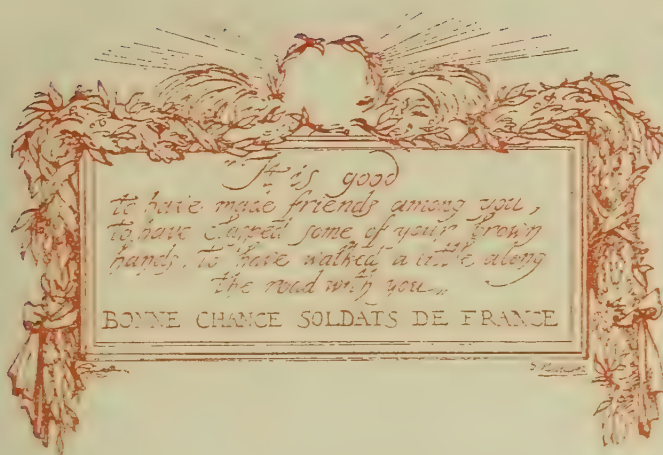 "It is good
to have made friends among you,
to have clasped some of your brown
hands, to have walked a little along
the road with you...
BONNE CHANCE SOLDATS DE FRANCE